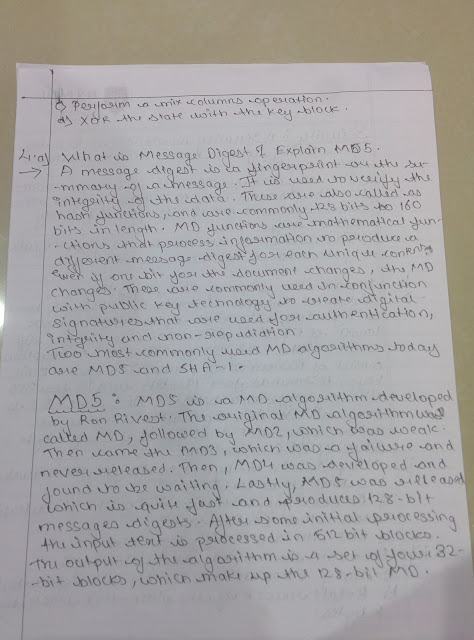 c) Perform a mix columns operation.
d) XOR the state with the key block.
4.a) What is Message Digest? Explain MD5.
→ A message digest is a fingerprint or the su-
-mmary of a message. It is used to verify the
integrity of the data. These are also called as
hash functions, and are commonly 128 bits to 160
bits in length. MD functions are mathematical fun-
-ctions that process information to produce a
different message digest for each unique content
even if one bit for the document changes, the MD
changes. These are commonly used in conjunction
with public key technology to create digital
signatures that are used for authentication,
integrity and non-repudiation.
Two most commonly used MD algorithms today
are MD5 and SHA-1.
MD5: MD5 is a MD algorithm developed
by Ron Rivest. The original MD algorithm was
called MD, followed by MD2, which was weak.
Then came the MD3, which was a failure and
never released. Then, MD4 was developed and
found to be waiting. Lastly, MD5 was released
which is quite fast and produces 128-bit
messages digests. After some initial processing
the input text is processed in 512 bit blocks.
The output of the algorithm is a set of four 32-
-bit blocks, which make up the 128-bit MD.